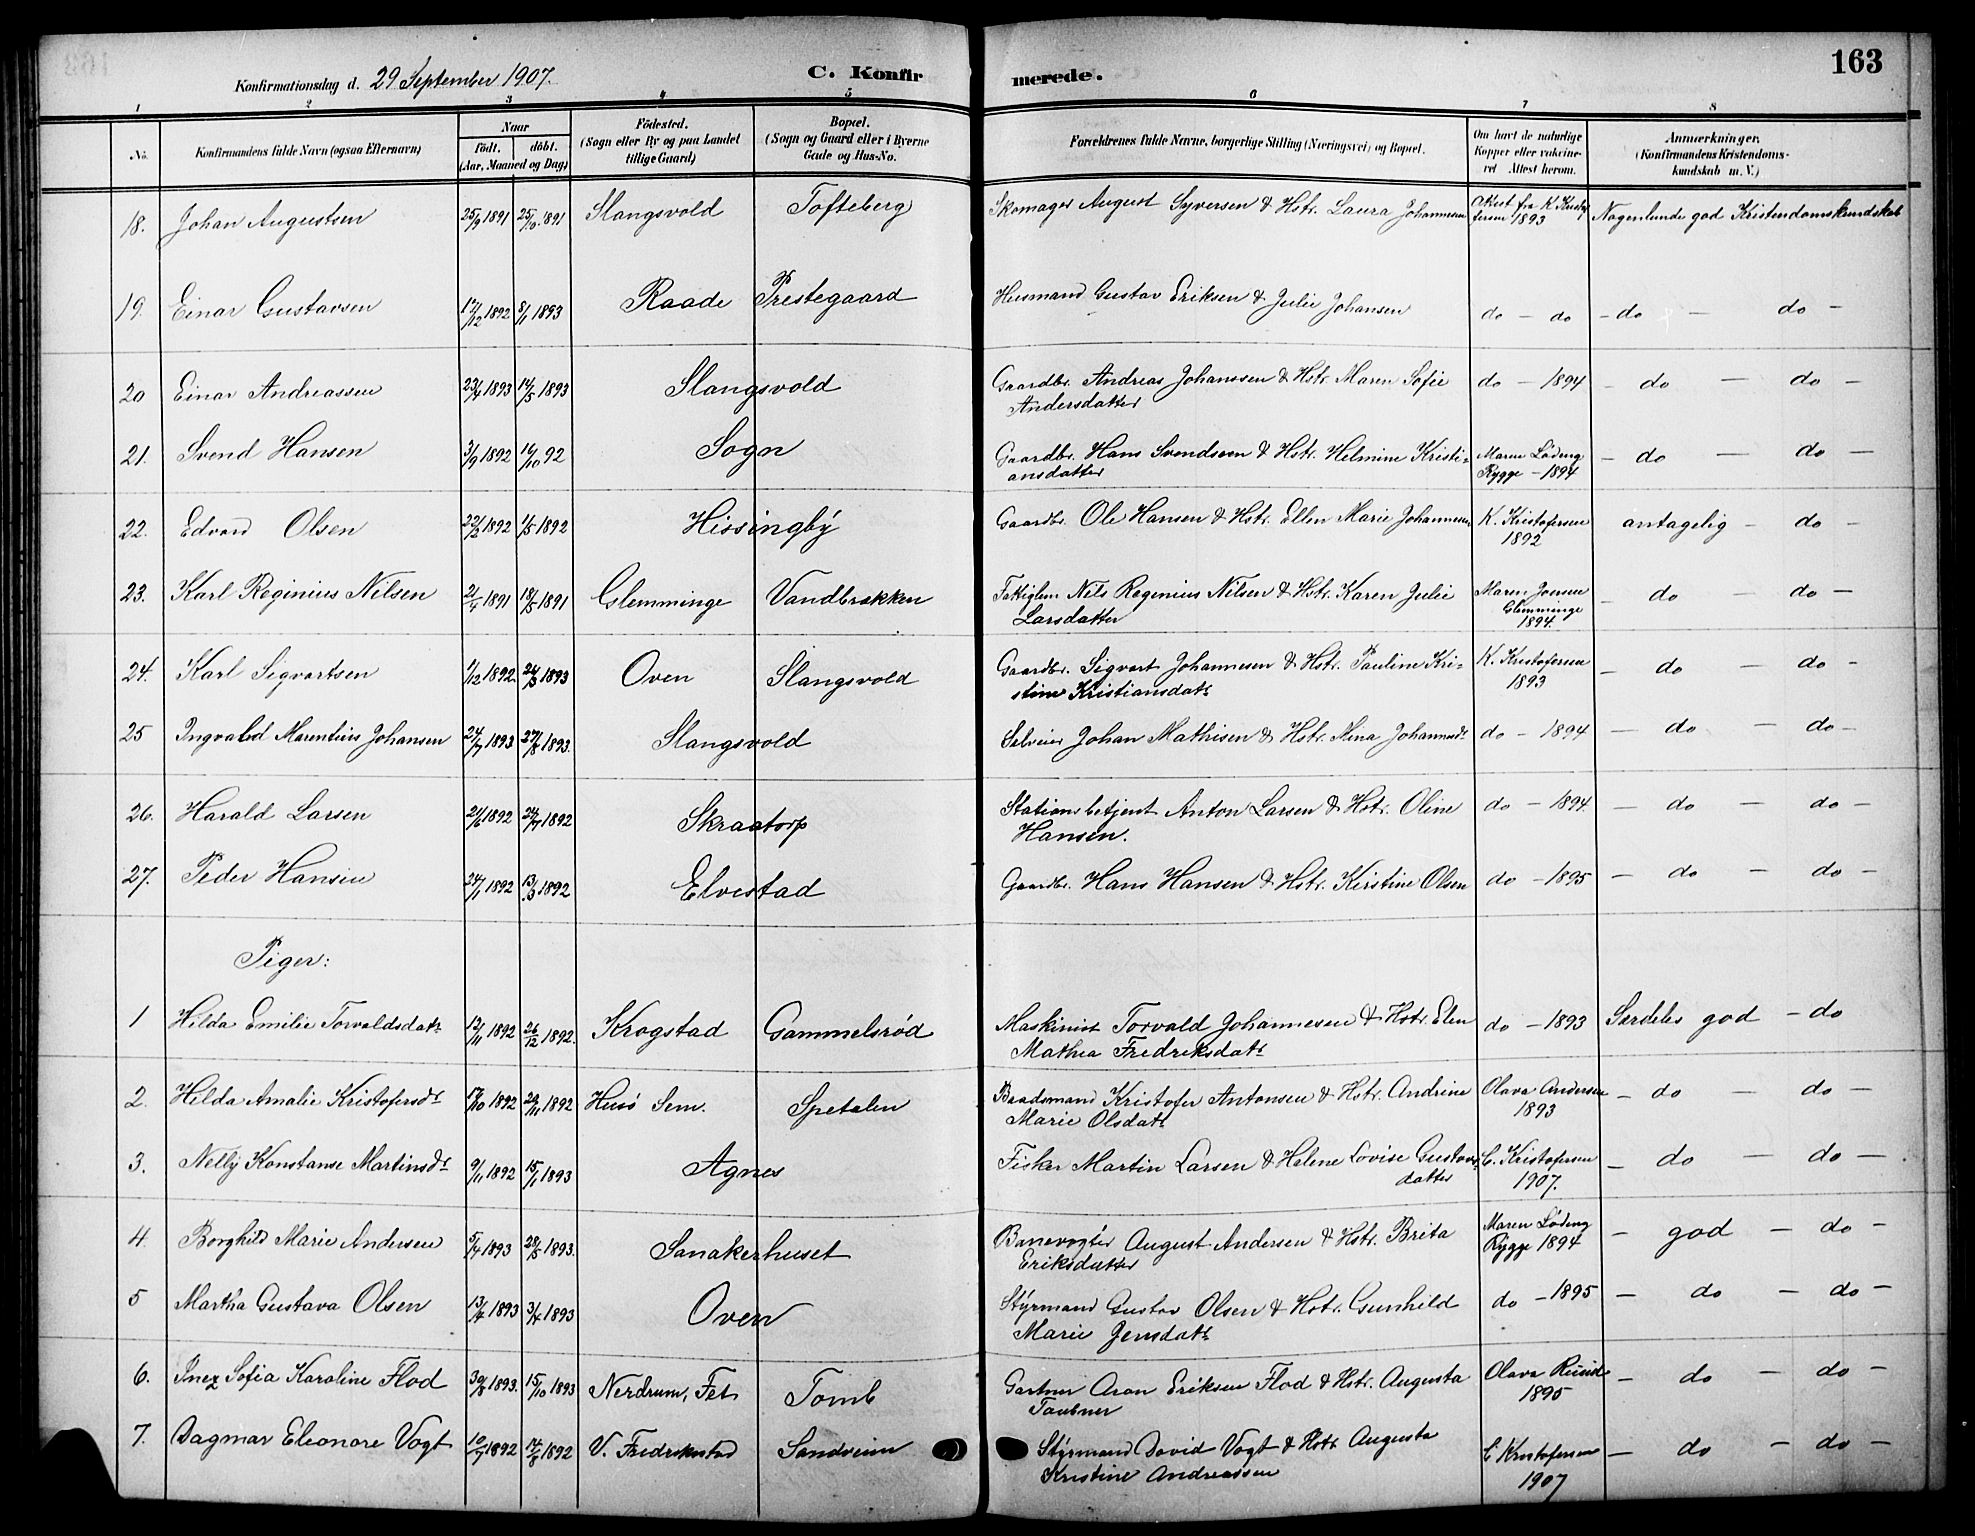 163
Konfirmationsdag d. 29 September 1907.
C. Konfirmerede.
1 2 3 4 5 6 7 8
No.
Konfirmandens fulde Navn (ogsaa Efternavn)
Naar
födt. döbt.
(Aar, Maaned og Dag)
Födested.
(Sogn eller By og paa Landet
tillige Gaard)
Bopæl.
(Sogn og Gaard eller i Byerne
Gade og Hus-No.
Forældrenes fulde Navne, borgerlige Stilling (Næringsvei) og Bopæl.
Om havt de naturlige
Kopper eller vakcine-
ret Attest herom.
Anmærkninger,
(Konfirmandens Kristendoms-
kundskab m. V.)
18. Johan Augustsen 25/9 1891 25/10 1891 Slangsvold Tofteberg Skomager August Syversen & Hstr. Laura Johannesen Attest fra K. Kristof
fersen 1893 Nogenlunde god Kristendomskundskab
19. Einar Gustavsen 17/12 1892 8/1 1893 Raade Prestegaard Husmand Gustav Eriksen & Julie Johansen do — do — do — do —
20 Einar Andreassen 23/4 1893 14/5 1893 Slangsvold Gaardbr. Andreas Johanssen & Hstr. Maren Sofie
Andersdatter do — 1894 — do — do —
21. Svend Hansen 3/9 1892 16/10 92 Sogn Gaardbr. Hans Svendseen & Hstr. Helmine Kristi=
ansdatter Maren Löding
Rygge — 1894 — do — do —
22. Edvard Olsen 22/2 1892 1/5 1892 Hissingby Gaardbr. Ole Hansen & Hstr. Ellen Marie Johannesen K. Kristofersen
1892 antagelig — do —
23. Karl Reginius Nilsen 2/4 1891 18/5 1891 Glemminge Vandbrækken Nils Reginius Nilsen & Hstr. Karen Julie
Larsdatter Maren Jonsen
Glemminge
1894. — do — do —
24. Karl Sigvartsen 1/12 1892 26/3 1893 Oven Slangsvold Gaardbr. Sigvart Johannesen & Hstr. Pauline Kri-
stine Kristiansdatr K. Kristofersen
1893 — do — do -
25 Ingvald Marentius Johansen 24/7 1893 27/8 1893. Slangsvold Selveier Johan Mathisen & Hstr. Mina Johannesdr do — 1894 — do — do —
26. Harald Larsen 21/6 1892 24/7 1892 Skraatorp Stationsbetjent Anton Larsen & Hstr. Oline
Hansen. do — 1894. — do — do —
27. Peder Hansen 24/1 1892 13/3 1892 Elvestad Gaardbr. Hans Hansen & Hstr. Kirstine Olsen do — 1895 — do — do —
Piger:
1 Hilda Emilie Torvaldsdatr 12/11 1892 26/12 1892. Krogstad Gammelsröd Maskinist Torvald Johannesen & Hstr. Elen
Mathea Fredriksdatr do — 1893 Særdeles god — do
2. Hilda Amalie Kristofersdr 17/10 1892 20/11 1892 Husö Sem. Spetalen Baadsmand Kristofer Antonsen & Hstr. Andrine
Marie Olsdatr Olava Andersen
1893 — do — do —
3. Nelly Konstanse Martinsdr 9/11 1892 15/1 1893 Agnes Fisker Martin Larsen & Helene Lovise Gustavs
datter C. Kristofersen
1907. — do — do —
4. Borghild Marie Andersen 5/4 1893 28/5 1893. Sanakerhuset Banevogter August Andersen & Hstr. Brita
Eriksdatter Maren Löding
Rygge 1894 — god — do —
5 Martha Gustava Olsen 3/4 1893 Oven Styrmand Gustav Olsen & Hstr. Gunhild
Marie Jensdatr do — 1895 — do — do —
6. Inez Sofia Karoline Flod 30/8 1893. 15/10 1893 Nerdrum, Fet Tomb Gartner Aron Eriksen Flod & Hstr. Augusta
Taubner Olava Ruud
1895 — do — do —
7. Dagmar Eleonore Vogt 10/7 1892 14/8 1892 V. Fredrikstad Sandveien Styrmand David Vogt & Hstr Augusta
Kristine Andreassen C Kristofersen
1907 — do — do —